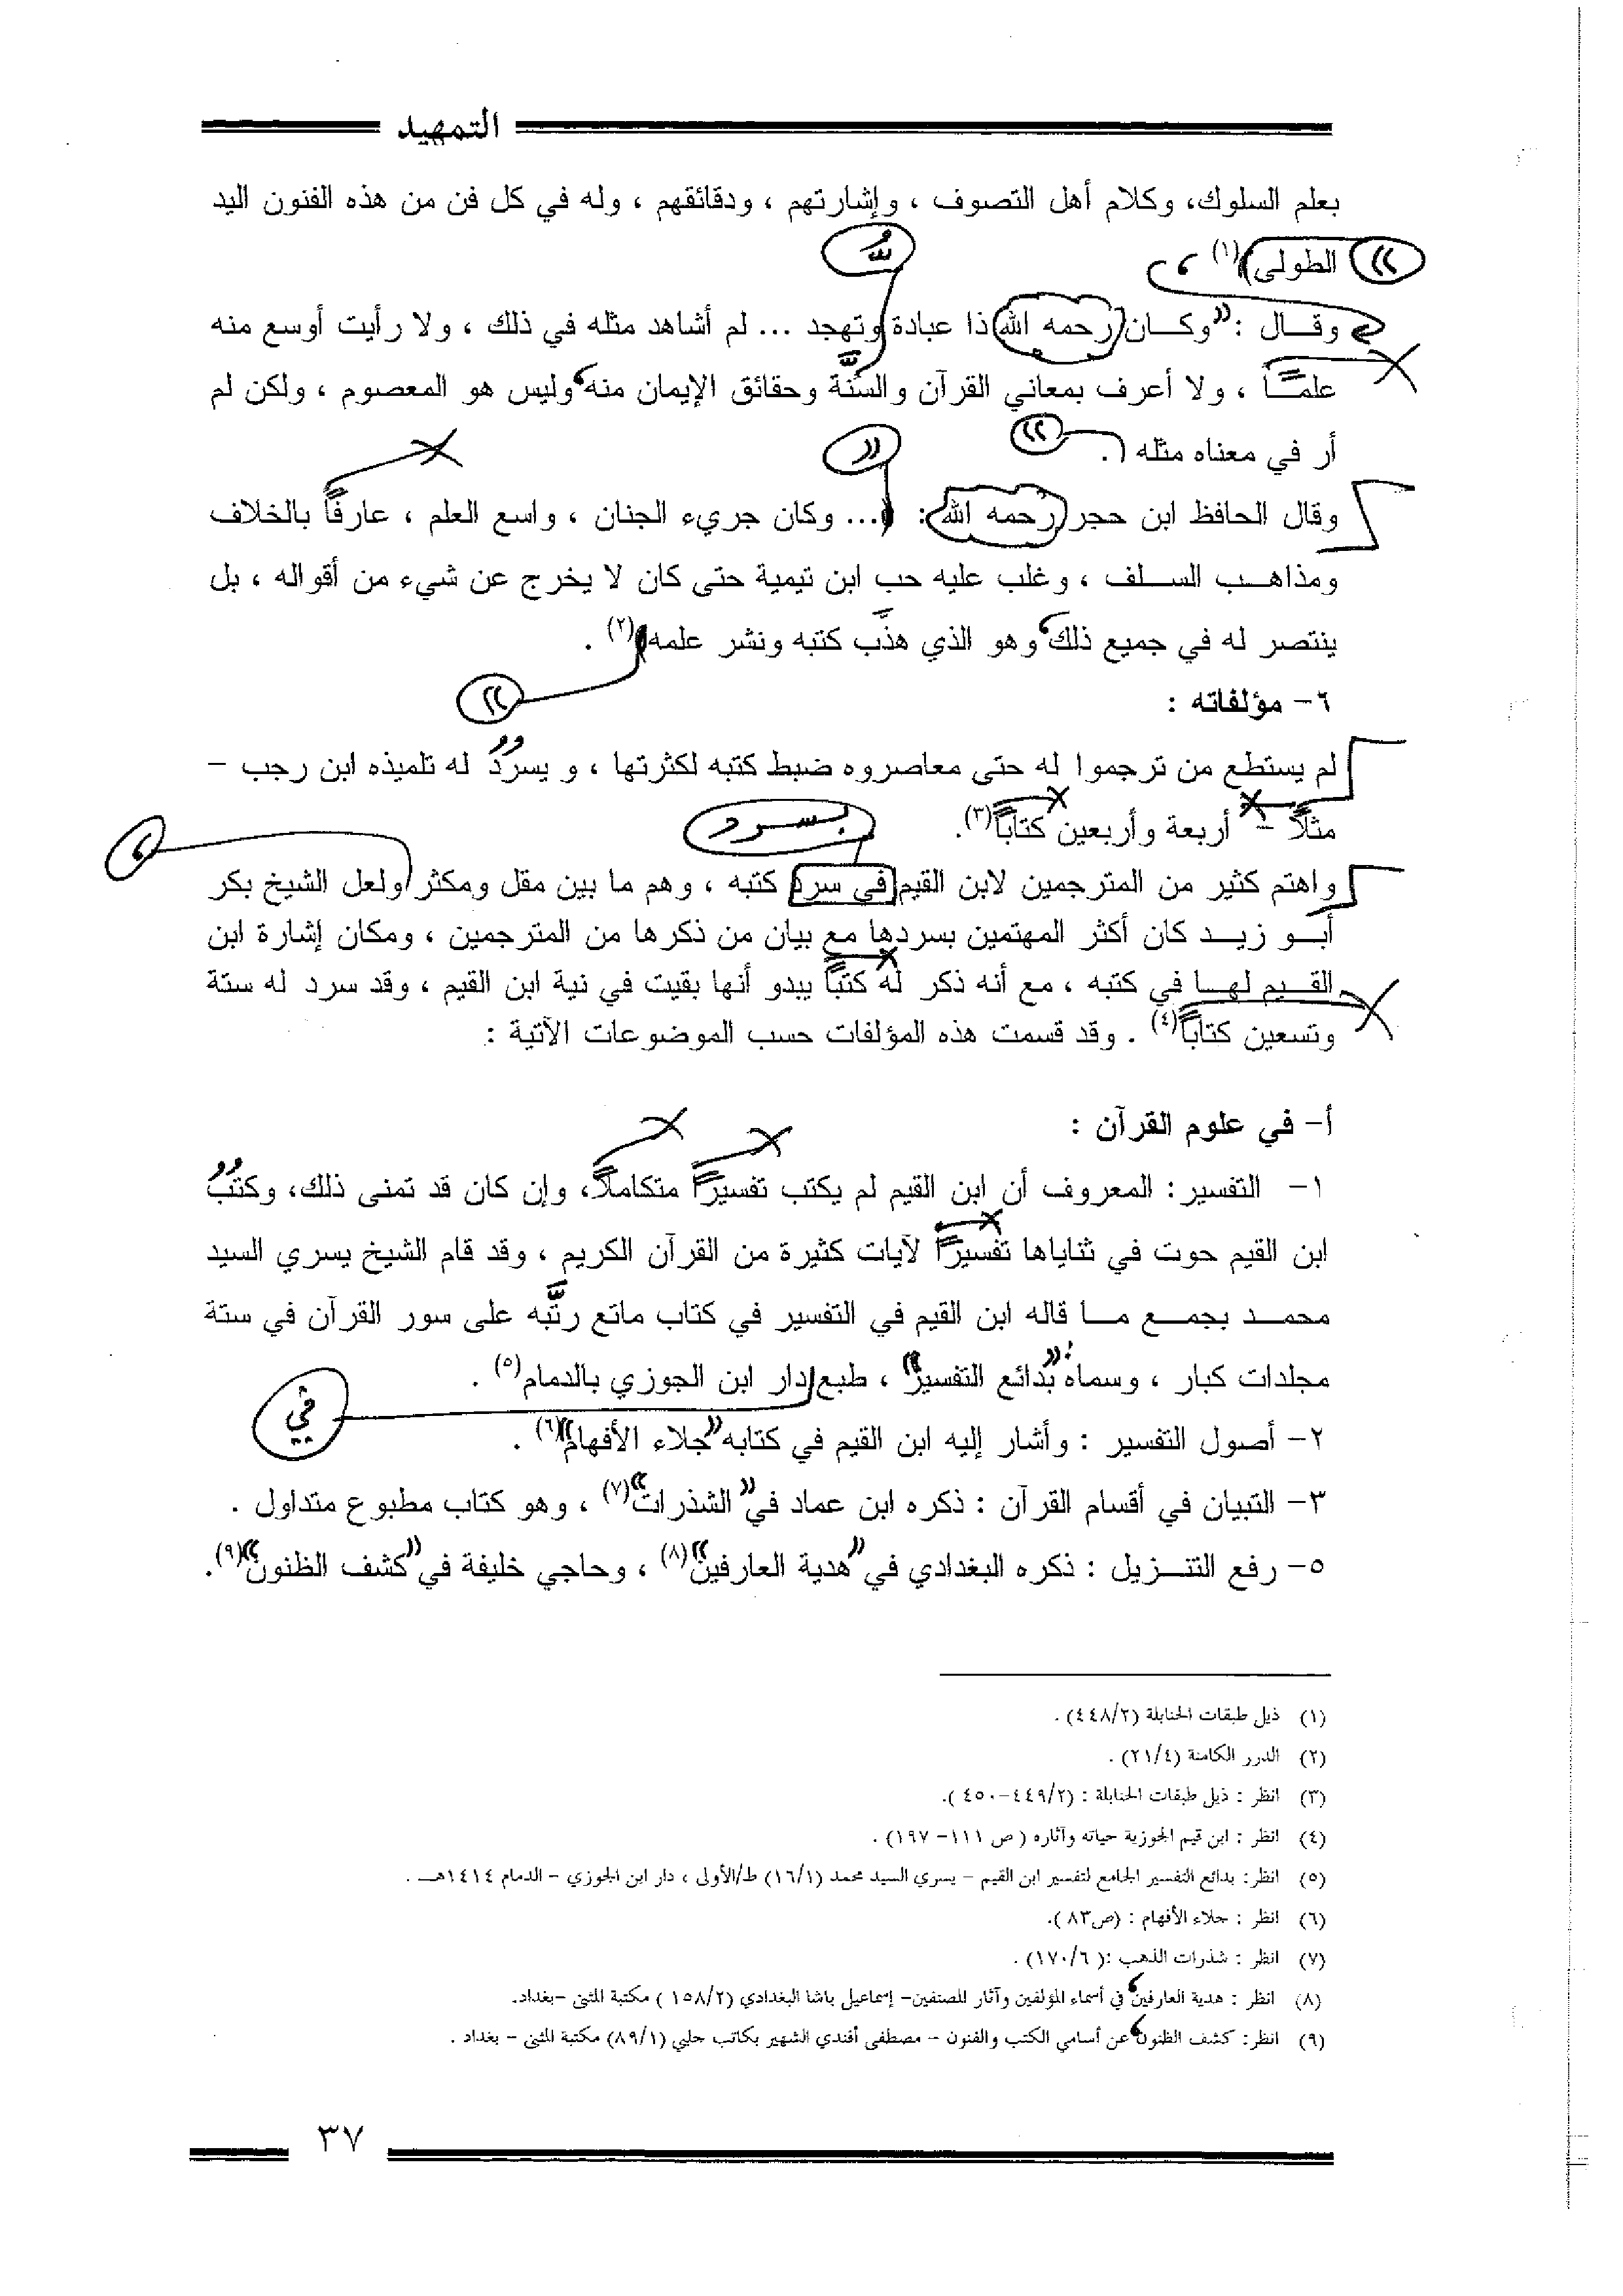 التمهيد
بعلم السلوك، وكلام أهل التصوف ، وإشارتهم ، ودقائقهم ، وله في كل فن من هذه الفنون اليد
الطولى)(١) »
وقـال : «وكـان رحمه الله ذا عبادة وتهجد ... لم أشاهد مثله في ذلك ، ولا رأيت أوسع منه
علمـاً ، ولا أعرف بمعاني القرآن والسُّنَّة وحقائق الإيمان منه، وليس هو المعصوم ، ولكن لم
أر في معناه مثله ». 
وقال الحافظ ابن حجر رحمه الله : «... وكان جريء الجنان ، واسع العلم ، عارفاً بالخلاف
ومذاهـب السـلف ، وغلب عليه حب ابن تيمية حتى كان لا يخرج عن شيء من أقواله ، بل
ينتصر له في جميع ذلك، وهو الذي هذَّب كتبه ونشر علمه»(٢) .
٦- مؤلفاته :
لم يستطع من ترجموا له حتى معاصروه ضبط كتبه لكثرتها ، و يسردُ له تلميذه ابن رجب -
مثلاً - أربعة وأربعين كتاباً(٣).
بسرد
واهتم كثير من المترجمين لابن القيم في سرد كتبه ، وهم ما بين مقل ومكثر ولعل الشيخ بكر
،
أبـو زيـد كان أكثر المهتمين بسردها مع بيان من ذكرها من المترجمين ، ومكان إشارة ابن
القـيم لهـا في كتبه ، مع أنه ذكر له كتباً يبدو أنها بقيت في نية ابن القيم ، وقد سرد له ستة
وتسعين كتاباً(٤) . وقد قسمت هذه المؤلفات حسب الموضوعات الآتية :
أ- في علوم القرآن :
١- التفسير : المعروف أن ابن القيم لم يكتب تفسيراً متكاملاً، وإن كان قد تمنى ذلك، وكتبُ
ابن القيم حوت في ثناياها تفسيراً لآيات كثيرة من القرآن الكريم ، وقد قام الشيخ يسري السيد
محمـد بجمـع مـا قاله ابن القيم في التفسير في كتاب ماتع رتَّبه على سور القرآن في ستة
مجلدات كبار ، وسماه : «بدائع التفسير» ، طبع دار ابن الجوزي بالدمام(٥) .
في
٢- أصول التفسير : وأشار إليه ابن القيم في كتابه «جلاء الأفهام»(٦) .
٣- التبيان في أقسام القرآن : ذكره ابن عماد في «الشذرات»(٧) ، وهو كتاب مطبوع متداول .
٥- رفع التنـزيل : ذكره البغدادي في «هدية العارفين»(٨) ، وحاجي خليفة في «كشف الظنون»(٩).
(١) ذيل طبقات الحنابلة (٤٤٨/٢) .
(٢) الدرر الكامنة (٢١/٤) .
(٣) انظر : ذيل طبقات الحنابلة : (٤٤٩/٢-٤٥٠ ).
(٤) انظر : ابن قيم الجوزية حياته وآثاره ( ص ١١١- ١٩٧) .
(٥) انظر: بدائع التفسير الجامع لتفسير ابن القيم - يسري السيد محمد (١٦/١) ط/الأولى ، دار ابن الجوزي - الدمام ١٤١٤هـ .
(٦) انظر : جلاء الأفهام : (ص٨٣ ).
(٧) انظر : شذرات الذهب :( ١٧٠/٦) .
(٨) انظر : هدية العارفين، في أسماء المؤلفين وآثار المصنفين- إسماعيل باشا البغدادي (١٥٨/٢ ) مكتبة المثنى -بغداد.
(٩) انظر: كشف الظنون، عن أسامي الكتب والفنون - مصطفى أفندي الشهير بكاتب جلبي (٨٩/١) مكتبة المثنى - بغداد .
٣٧